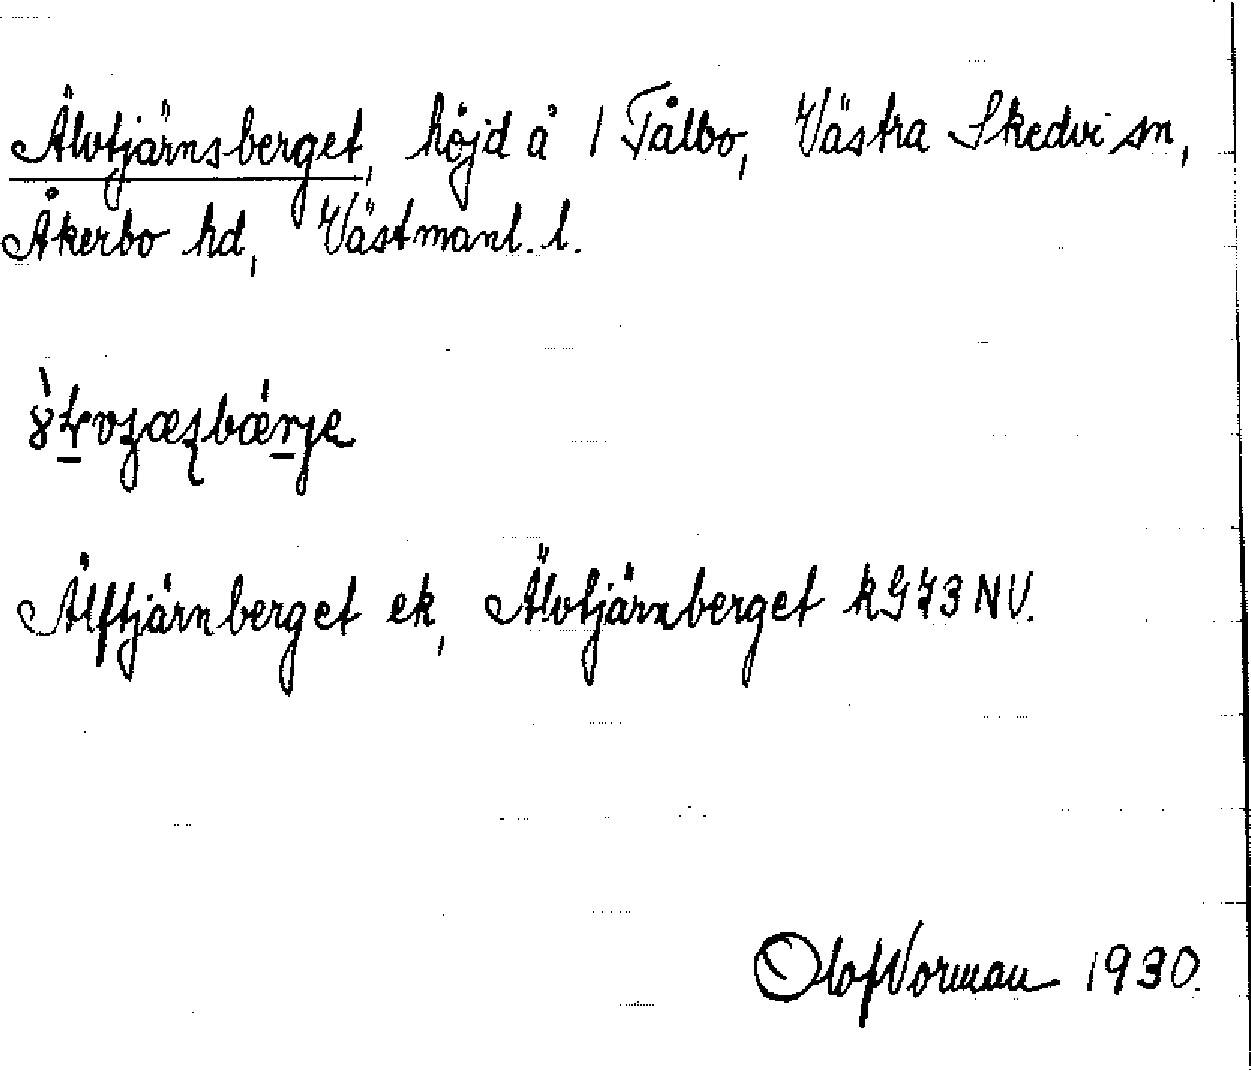 Älvtjärnsberget, höjd å 1 Tålbo, Västra Skedvi sn,
Åkerbo hd, Västmanl. l.
Älftjärnberget ek, Älvtjärnberget kG73NV.
Olof Norman 1930.